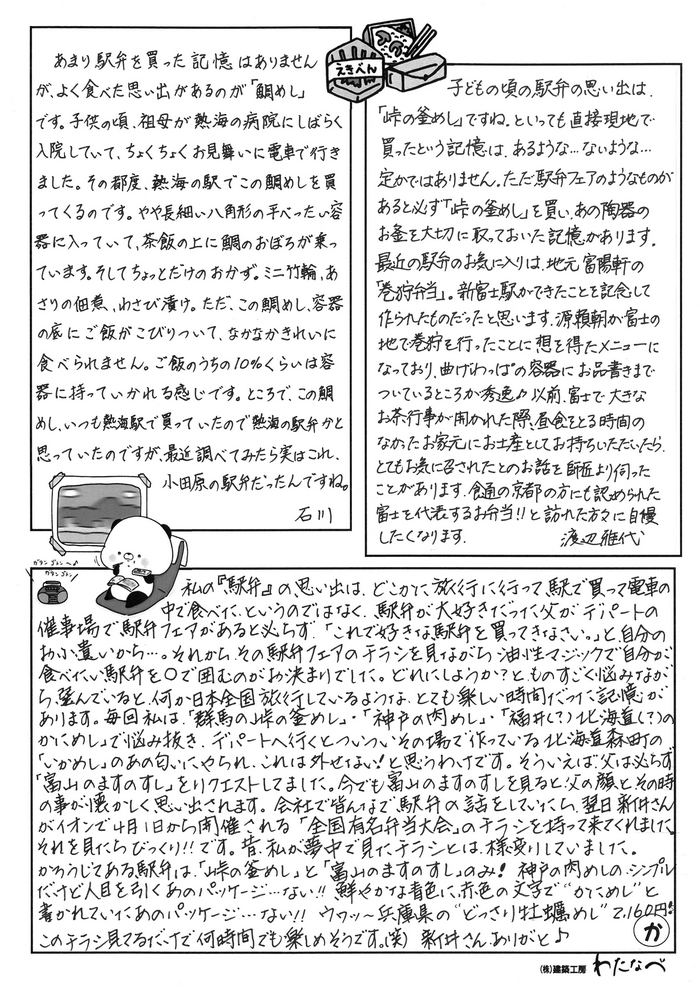 えきべん
あまり駅弁を買った記憶はありません
が、よく食べた思い出があるのが「鯛めし」
です。子供の頃、祖母が熱海の病院にしばらく
入院していて、ちょくちょくお見舞いに電車で行き
ました。その都度、熱海の駅でこの鯛めしを買
ってくるのです。やや長細い八角形の平べったい容
器に入っていて、茶飯の上に鯛のおぼろが乗っ
ています。そしてちょっとだけのおかず。ミニ竹輪、あ
さりの佃煮、わさび漬け。ただ、この鯛めし、容器
の底にご飯がこびりついて、なかなかきれいに
食べられません。ご飯のうちの10%くらいは容
器に持っていかれる感じです。ところで、この鯛
めし、いつも熱海駅で買っていたので熱海の駅弁かと
思っていたのですが、最近調べてみたら実はこれ、
小田原の駅弁だったんですね。
石川
子どもの頃の駅弁の思い出は、
「峠の釜めし」ですね。といっても直接現地で
買ったという記憶は、あるような…ないような…
定かではありません。ただ駅弁フェアのようなものが
あると必ず「峠の釜めし」を買い、あの陶器の
お釜を大切に取っておいた記憶があります。
最近の駅弁のお気に入りは、地元富陽軒の
「巻狩弁当」。新富士駅ができたことを記念して
作られたものだったと思います。源頼朝が富士の
地で巻狩を行ったことに想を得たメニューに
なっており、曲げわっぱの容器にお品書きまで
ついているところが秀逸♪以前、富士で大きな
お茶行事が開かれた際、昼食をとる時間の
なかったお家元にお土産としてお持ちいただいたら、
とてもお気に召されたとのお話を師匠より伺った
ことがあります。食通の京都の方にも認められた
富士を代表するお弁当!!と訪れた方々に自慢
したくなります。 渡辺雅代
ガタン ゴトン〜♪
ガタン ゴトン
私の『駅弁』の思い出は、どこかに旅行に行って駅で買って電車の
中で食べた、というのではなく、駅弁が大好きだった父がデパートの
催事場で駅弁フェアがあると必らず「これで好きな駅弁を買ってきなさい。」と自分の
お小遣いから…。それから、その駅弁フェアのチラシを見ながら油性マジックで自分が
食べたい駅弁を○で囲むのがお決まりでした。どれにしようか?と、ものすごく悩みなが
ら、選んでいると、何か日本全国旅行しているような、とても楽しい時間だった記憶が
あります。毎回私は、「群馬の峠の釜めし」・「神戸の肉めし」・「福井(?)北海道(?)の
かにめし」で悩み抜き、デパートへ行くとついついその場で作っている北海道森町の
「いかめし」のあの匂いにやられ、これは外せない!と思うわけです。そういえば、父は必らず
「富山のますのすし」をリクエストしてました。今でも富山のますのすしを見ると、父の顔とその時
の事が懐かしく思い出されます。会社で皆んなで駅弁の話をしていたら、翌日新井さん
がイオンで4月1日から開催される「全国有名弁当大会」のチラシを持って来てくれました。
それを見たらびっくり!!です。昔、私が夢中で見たチラシとは、様変りしていました。
かろうじてある駅弁は、「峠の釜めし」と「富山のますのすし」のみ! 神戸の肉めしの、シンプル
だけど人目を引くあのパッケージ…ない!! 鮮やかな青色に、赤色の文字で“かにめし”と
書かれていたあのパッケージ…ない!! ウワッ〜兵庫県の“どっさり牡蠣めし”2,160円!!
このチラシ見てるだけで何時間でも楽しめそうです。(笑) 新井さん、ありがと♪
か
(株)建築工房 わたなべ